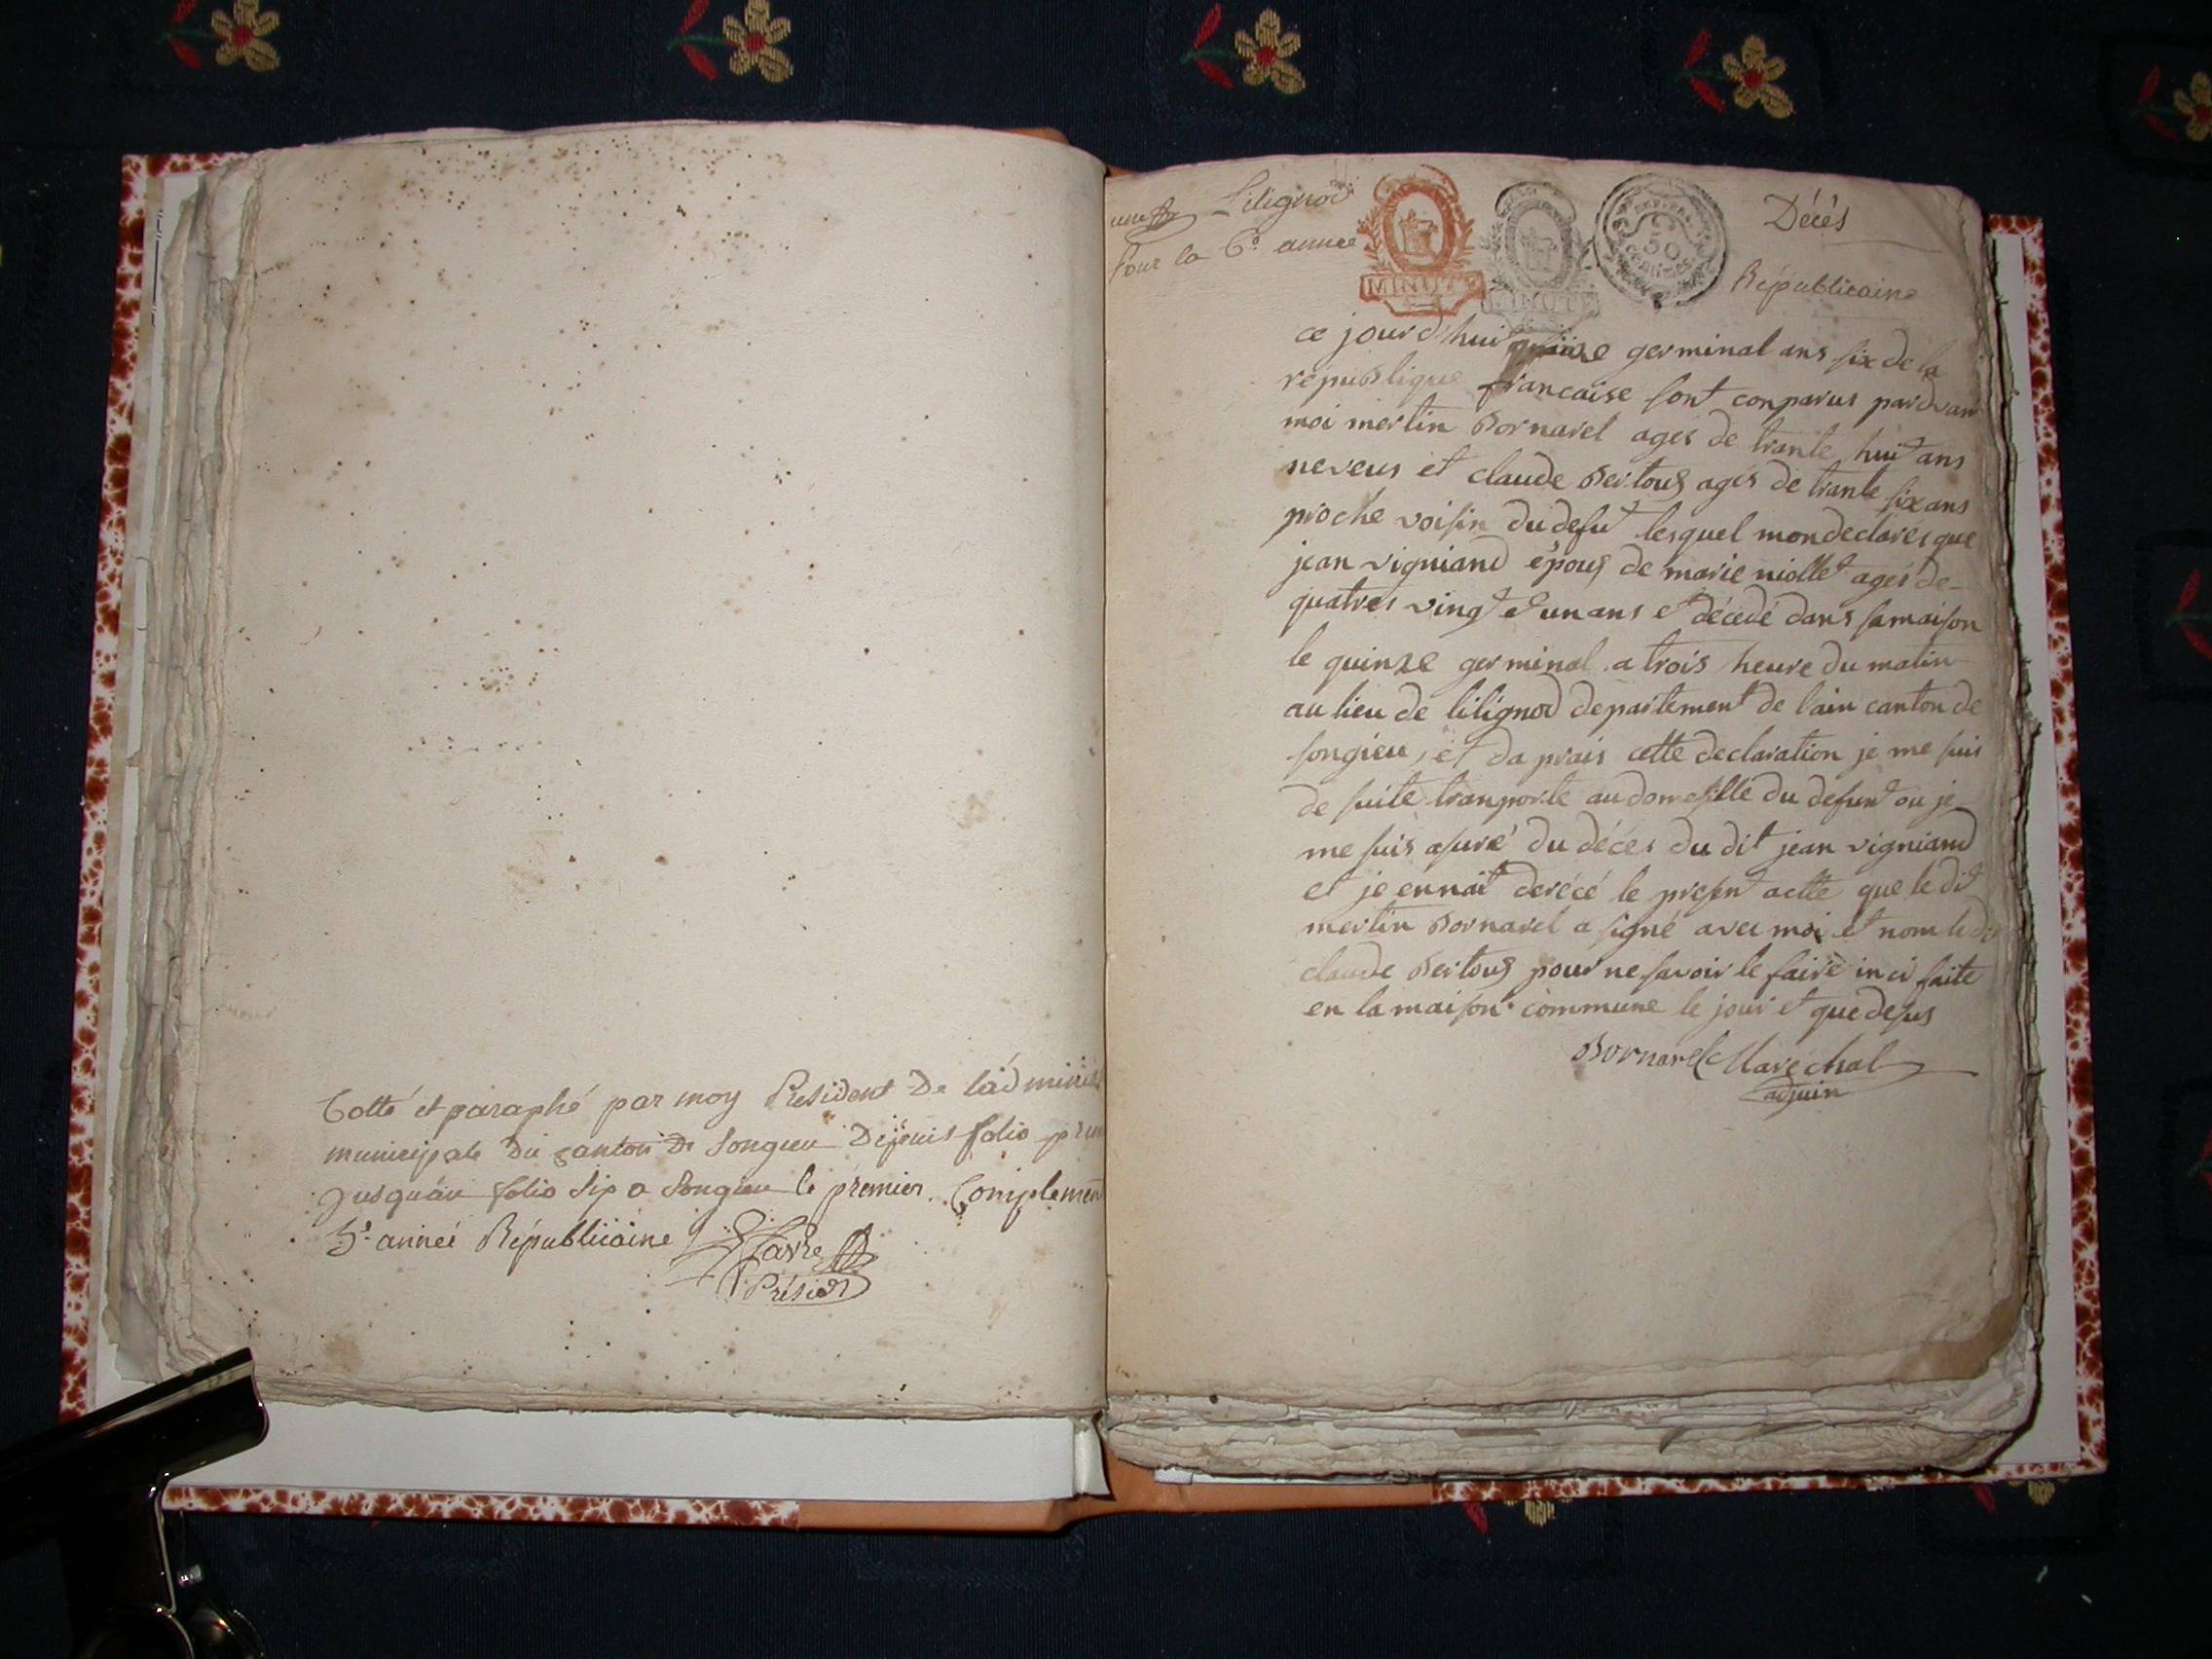 Cotté et paraphé par moy Président De l'administ
municipale du canton De Songieu Depuis folio prem
Jusquau folio Six a Songieu le premier Complement
5e année Républicaine
favre
Présidt
Lilignod
Décès
pour la 6e année
Républicaine
MINUTE
MINUTE
50
centimes
ce jourd'hui quinze germinal ans six de la
république francaise sont conparus pardvan
moi mertin Bornarel ages de trante huit ans
neveus et claude Bertoug agés de trante six ans
proche voisin du defut lesquel mondeclarés que
jean vigniand époug de marie niollet agés de
quatres vingt et un ans et décédé dans sa maison
le quinze germinal a trois heure du matin
au lieu de lilignod departement de lain canton de
songieu, et da prais cette declaration je me suis
de suite tranporte au domesille du defunt ou je
me suis asuré du décès du dit jean vigniand
et je en nait derécé le presnt actte que le dit
mertin Bornarel a signé avec moi et nom le dit
claude Bertoug pour ne savoir le faire inci faite
en la maison commune le jour et que desus
Bornarel Marechal
adjuin